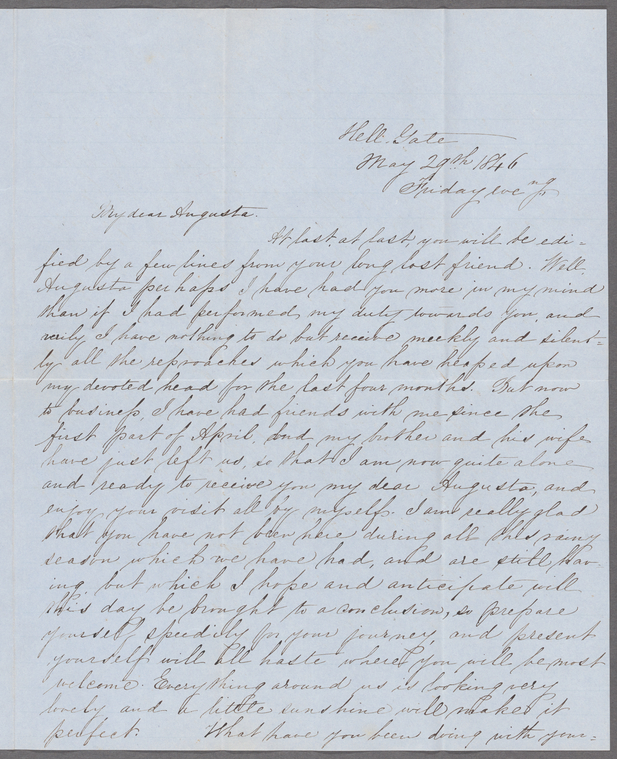 Hell Gate
May 29th 1846
Friday eve'ng
My dear Augusta.
At last, at last, you will be edi=
fied by a few lines from your long lost friend. Well,
Augusta perhaps I have had you more in my mind
than if I had performed my duty towards you, and
verily I have nothing to do but receive meekly and silent=
ly all the reproaches which you have heaped upon
my devoted head for the last four months. But now
to business, I have had friends with me since the
first part of April, and my brother and his wife
have just left us, so that I am now quite alone
and ready to receive you my dear Augusta, and
enjoy your visit all by myself. I am really glad
that you have not been here during all this rainy
season which we have had, and are still hav-
ing, but which I hope and anticipate will
this day be brought to a conclusion, so prepare
yourself speedily for your journey, and present
yourself will all haste where you will be most
welcome. Everything around us is looking very
lovely and a little sunshine will make it
perfect. What have you been doing with your=